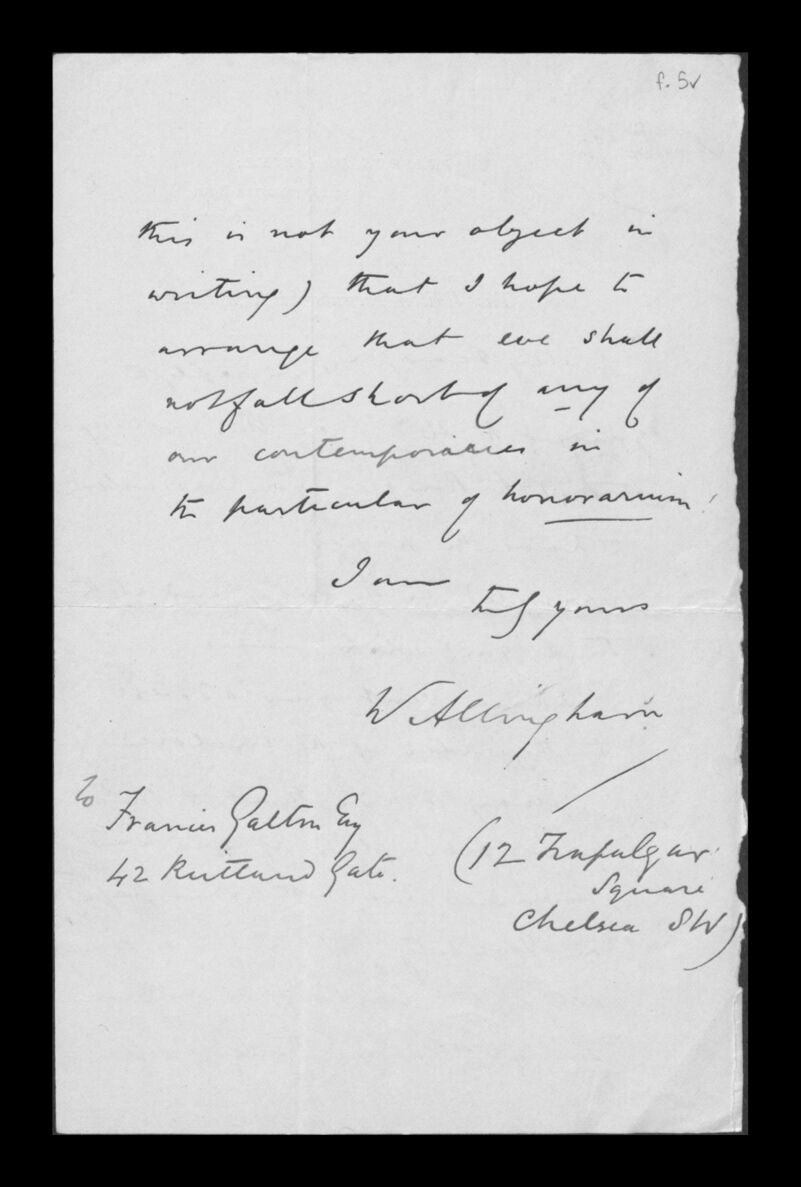 f. 5v
this is not your object in
writing) that I hope to
arrange that we shall
not fall short of any of
our contemporaries in
the particular of honorarium!
I am
yours
W Allingham
to
Francis Galton Esq
42 Rutland Gate.
(12 Trafalgar
Square
Chelsea SW)